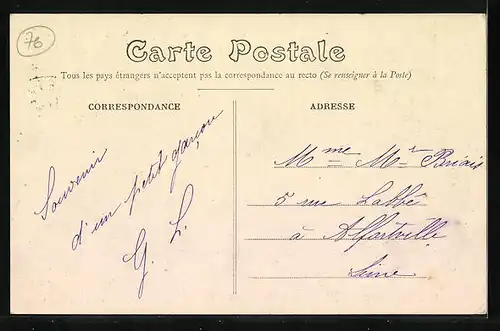 76
Carte Postale
Tous les pays étrangers n'acceptent pas la correspondance au recto (Se renseigner à la Poste)
CORRESPONDANCE
Souvenir
d'un petit garçon
G. L.
ADRESSE
Mme Mr
5 rue Labbé
à Alfortville
Seine